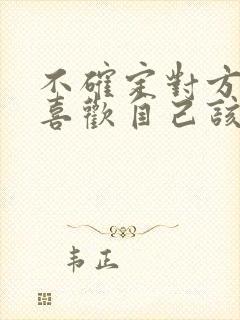 不確定對方
喜歡自己該
韦正